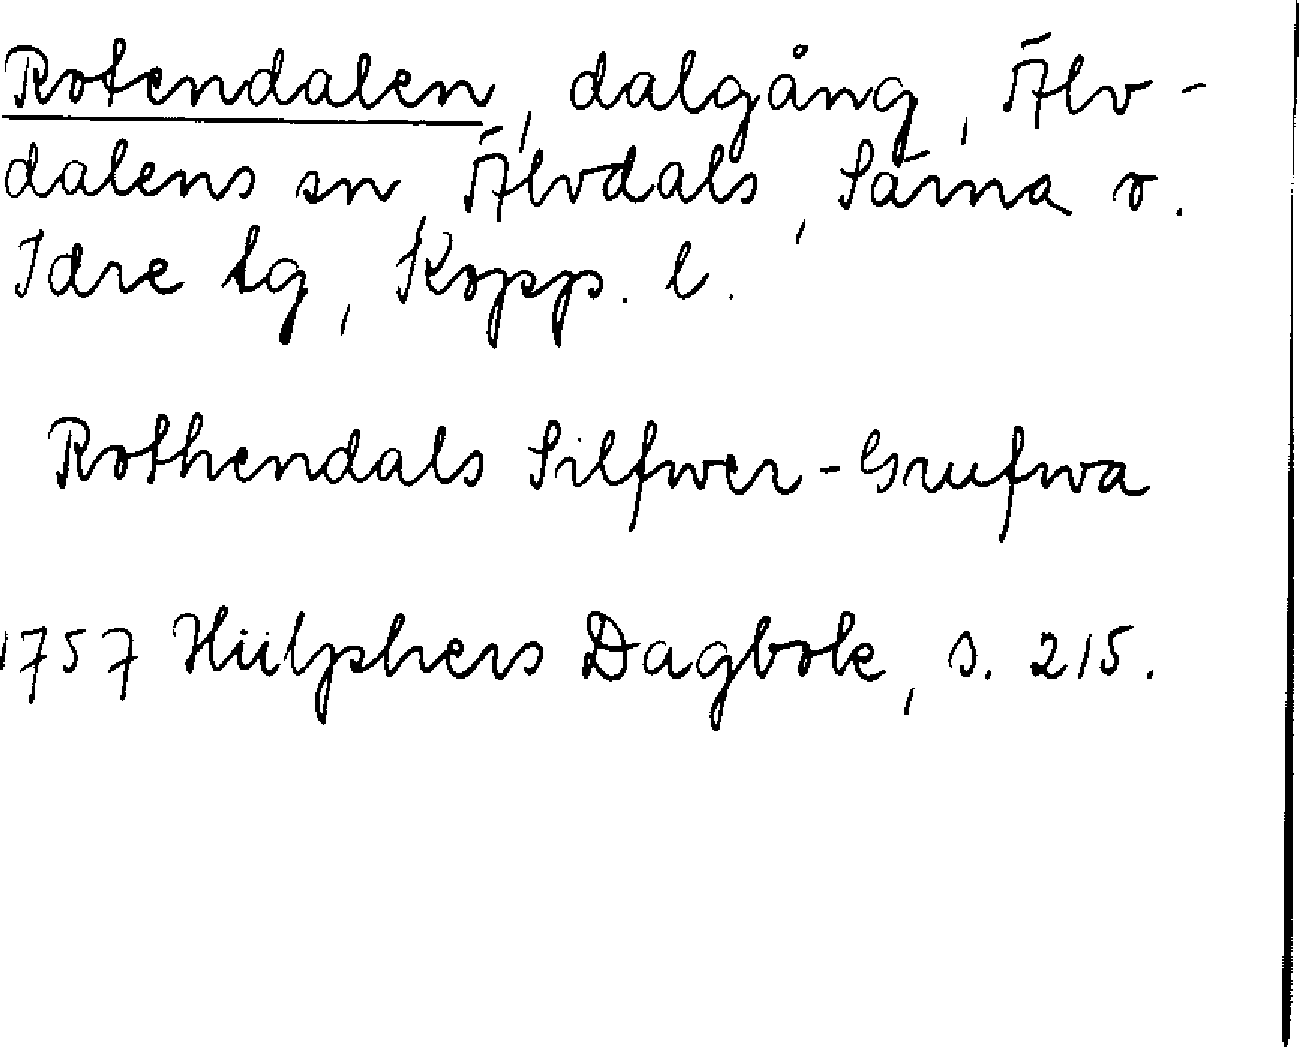 Rotendalen, dalgång, Älv-
dalens sn, Älvdals, Särna o.
Idre tg, Kopp. l.
Rothendals Silfwer-Grufwa
1757 Hülphers Dagbok, s. 215.